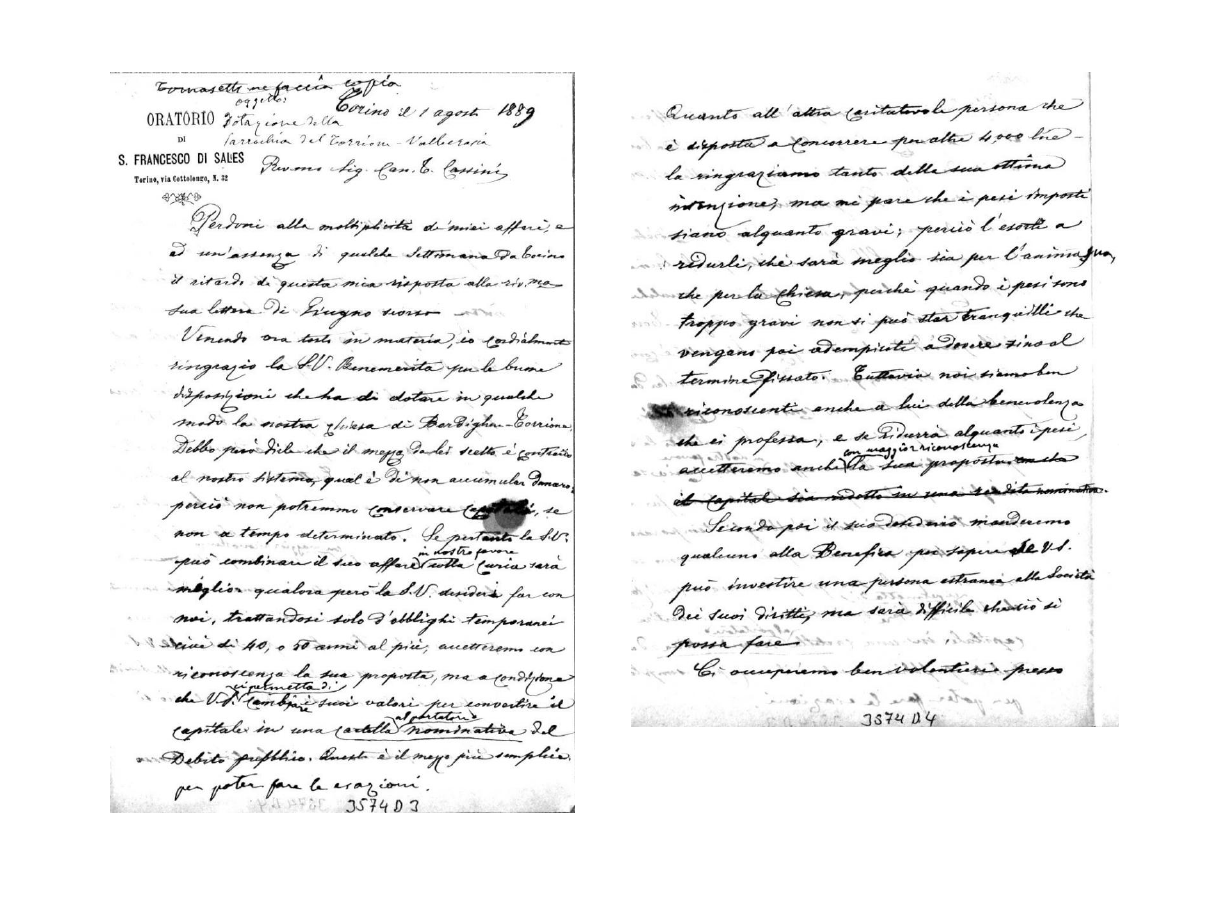 Tomasetti ne faccia copia
oggetto:
Torino il 1 agosto 1889
ORATORIO
DI
S. FRANCESCO DI SALES
Torino, via Cottolengo, N. 32
Dotazione della
Parrochia del Torrione - Vallecrosia
Revmo Sig. Can. T. Cassini,
Perdoni alla moltiplicità de' miei affari, e
ad un'assenza di qualche settimana da Torino
il ritardo di questa mia risposta alla riv.ma
sua lettera di Giugno scorso
Venendo ora tosto in materia, io cordialmente
ringrazio la S.V. Benemerita per le buone
disposizioni che ha di dotare in qualche
modo la nostra chiesa di Bordighera-Torrione.
Debbo però dirle che il mezzo da lei scelto è contrario
al nostro sistema, qual è di non accumular danaro;
perciò non potremmo conservare capitali, se
non a tempo determinato. Se pertanto la S.V.
in nostro favore
può combinare il suo affare colla Curia sarà
meglio; qualora però la S.V. desideri far con
noi, trattandosi solo d'obblighi temporanei
cioè di 40, o 50 anni al più, accetteremo con
riconoscenza la sua proposta, ma a condizione
ci permetta di
che V.S. cambiare i suoi valori per convertire il
al portatore
capitale in una cartella nominativa del
Debito pubblico. Questo è il mezzo più semplice
per poter fare le esazioni.
3574 D 3
Quanto all'altra caritatevole persona che
è disposta a concorrere per altre 4,000 lire -
la ringraziamo tanto della sua ottima
intenzione, ma mi pare che i pesi imposti
siano alquanto gravi; perciò l'esorti a
ridurli, chè sarà meglio sia per l'anima sua,
che per la Chiesa, perchè quando i pesi sono
troppo gravi non si può star tranquilli che
vengano poi adempiuti a dovere sino al
termine fissato. Tuttavia noi siamo ben
riconoscenti anche a lui della benevolenza
che ci professa, e se ridurrà alquanto i pesi,
con maggior riconoscenza
accetteremo anche la sua proposta, con che
il capitale sia ridotto in una rendita nominativa.
Secondo poi il suo desiderio manderemo
qualcuno alla Benefica per sapere se V.S.
può investire una persona estranea alla Società
dei suoi diritti, ma sarà difficile che ciò si
possa fare
Ci occuperemo ben volentieri presso
3574 D 4